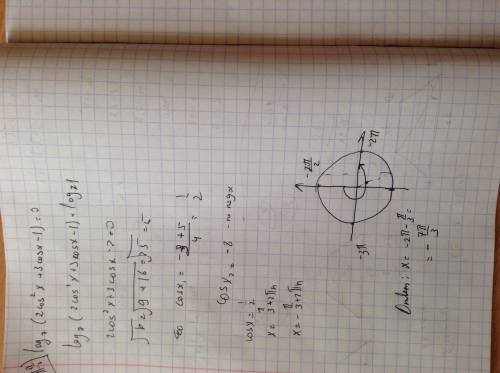 log₇(2cos²x+3cosx-1)=0
log₇(2cos²x+3cosx-1)=log₇1
2cos²x+3cosx-2=0
√D=√9+16=√25=5
cosx₁= (-3+5)/4 = 1/2
cosx₂=-8 -
cosx=1/2
x=π/3+2πn
x=-π/3+2πn
-3π
-2π
Ответ: x = -2π-π/3=
= -7π/3